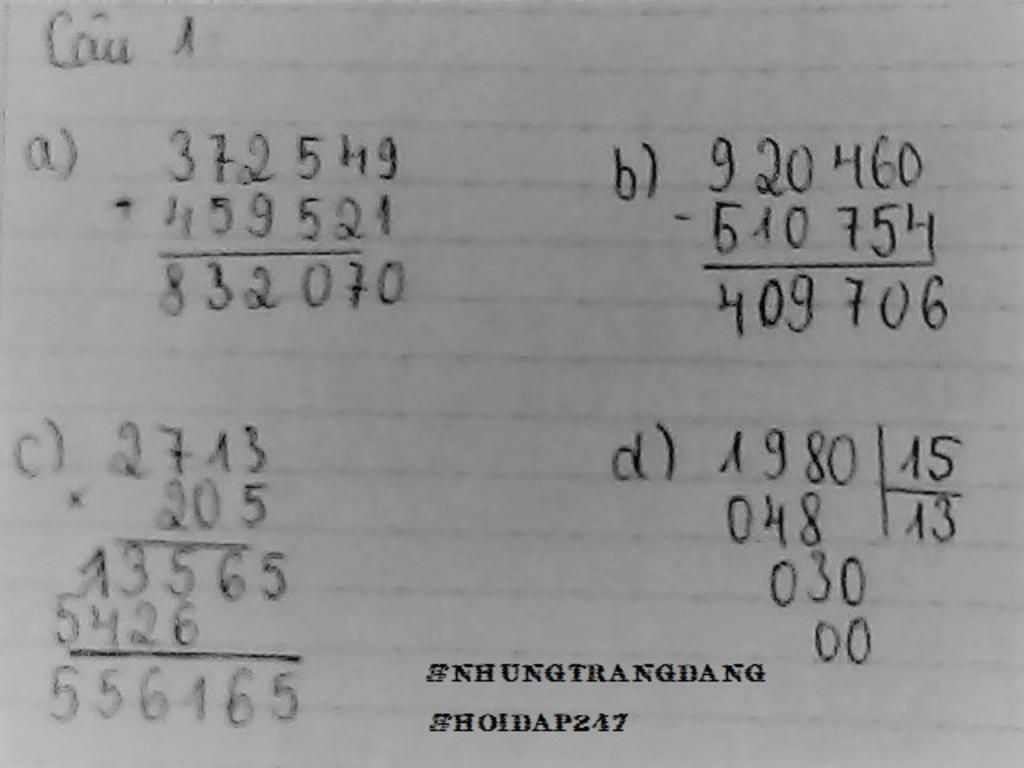 Câu 1
a) 372 549
+ 459 521
832 070
b) 920 460
- 510 754
409 706
c) 2713
× 205
13565
5426
556165
d) 1980 | 15
048 13
030
00
#NHUNGTRANGDANG
#HOIDAP247